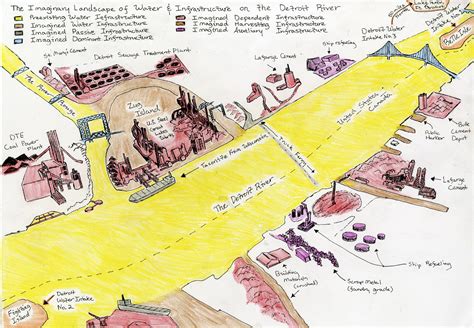 The Imaginary Landscape of Water & Infrastructure on the Detroit River
Preexisting Water Infrastructure
Imagined Water Infrastructure
Imagined Passive Infrastructure
Imagined Dominant Infrastructure
Imagined Dependent Infrastructure
Imagined Harvesting Infrastructure
Imagined Auxiliary Infrastructure
Detroit
Water Intake
Belle Isle
Detroit Sewage Treatment Plant
Ship refueling
Lafarge Cement
Detroit
Water Intake
No. 3
The River Rouge
Zug
Island
U.S. Steel
Great
Lakes
Works
United States
Canada
Bulk
Cement
Depot
Public
Harbor
DTE
Coal Power
Plant
Taconite from
Lafarge
Cement
The Detroit River
Ship Refueling
Building
Materials
(crushed)
Scrap Metal
(foundry grade)
Fighting
Island
Detroit
Water Intake
No. 2